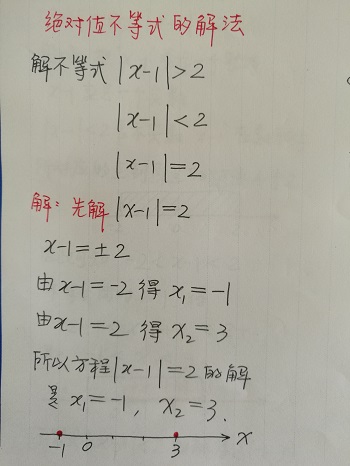 绝对值不等式的解法
解不等式|x-1|>2
|x-1|<2
|x-1|=2
解:先解|x-1|=2
x-1=±2
由x-1=-2得x₁=-1
由x-1=2得x₂=3
所以方程|x-1|=2的解
是x₁=-1, x₂=3.
-1 0 3 x